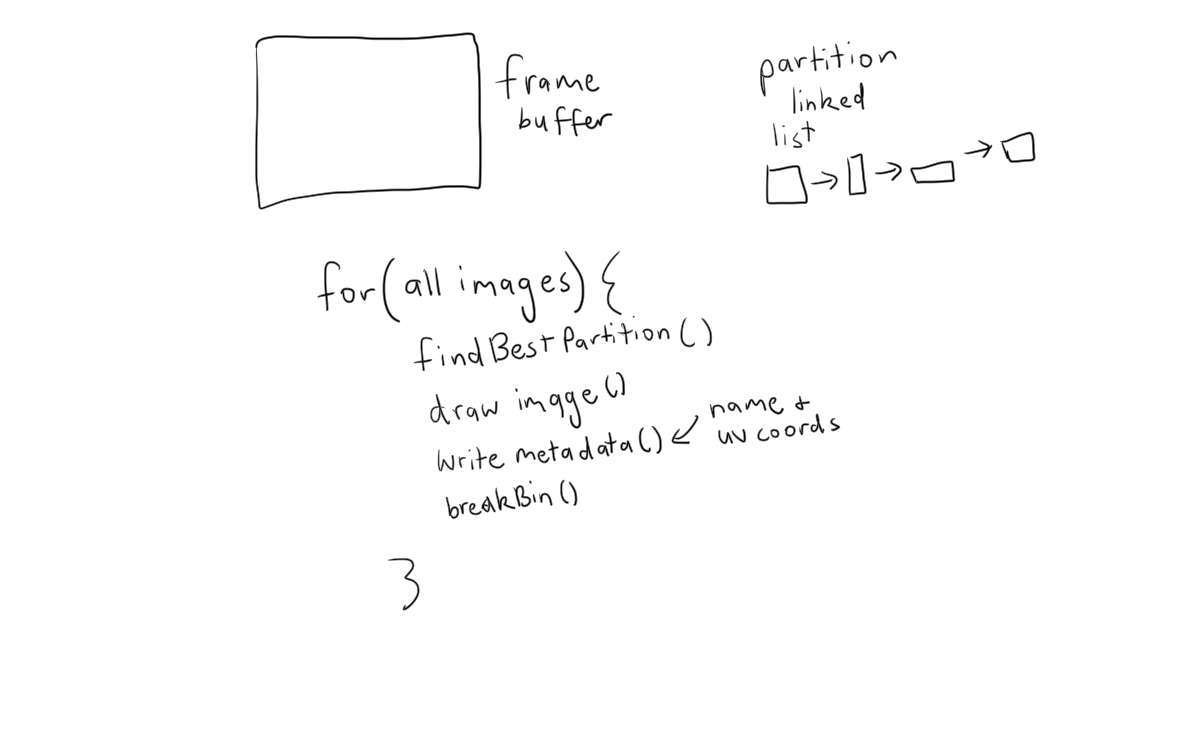 frame
buffer
partition
linked
list
for(all images){
findBestPartition()
draw image()
write metadata()
name &
uv coords
breakBin()
}